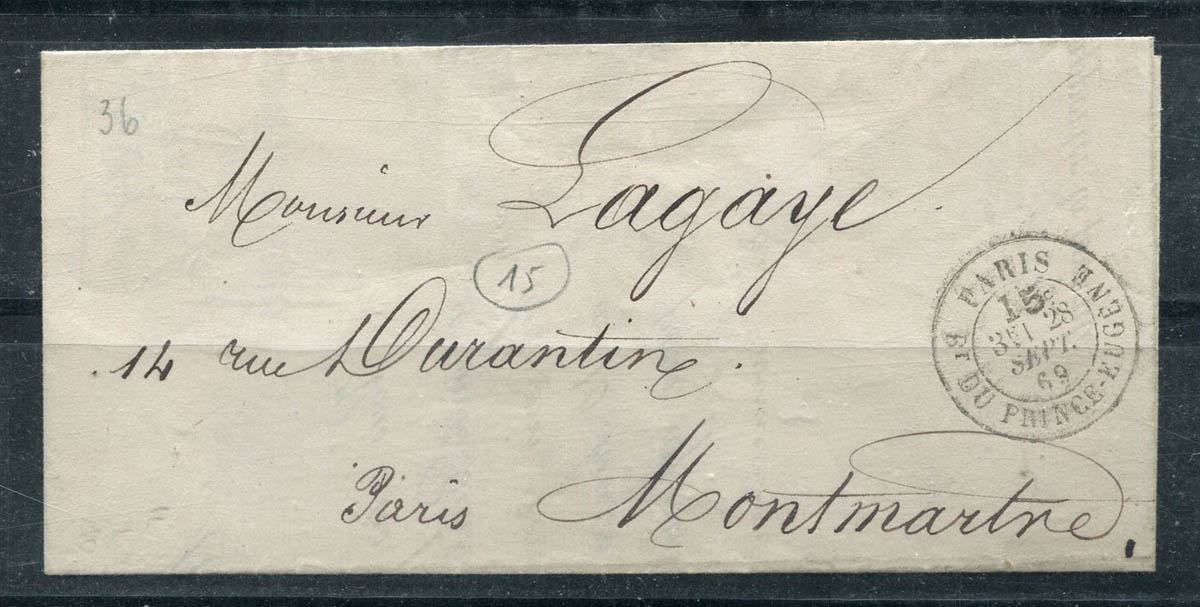 36
Monsieur Lagaye.
15
14 rue Durantin.
Paris Montmartre.
PARIS
Bt DU PRINCE-EUGENE
15
3E/ 28
SEPT.
69